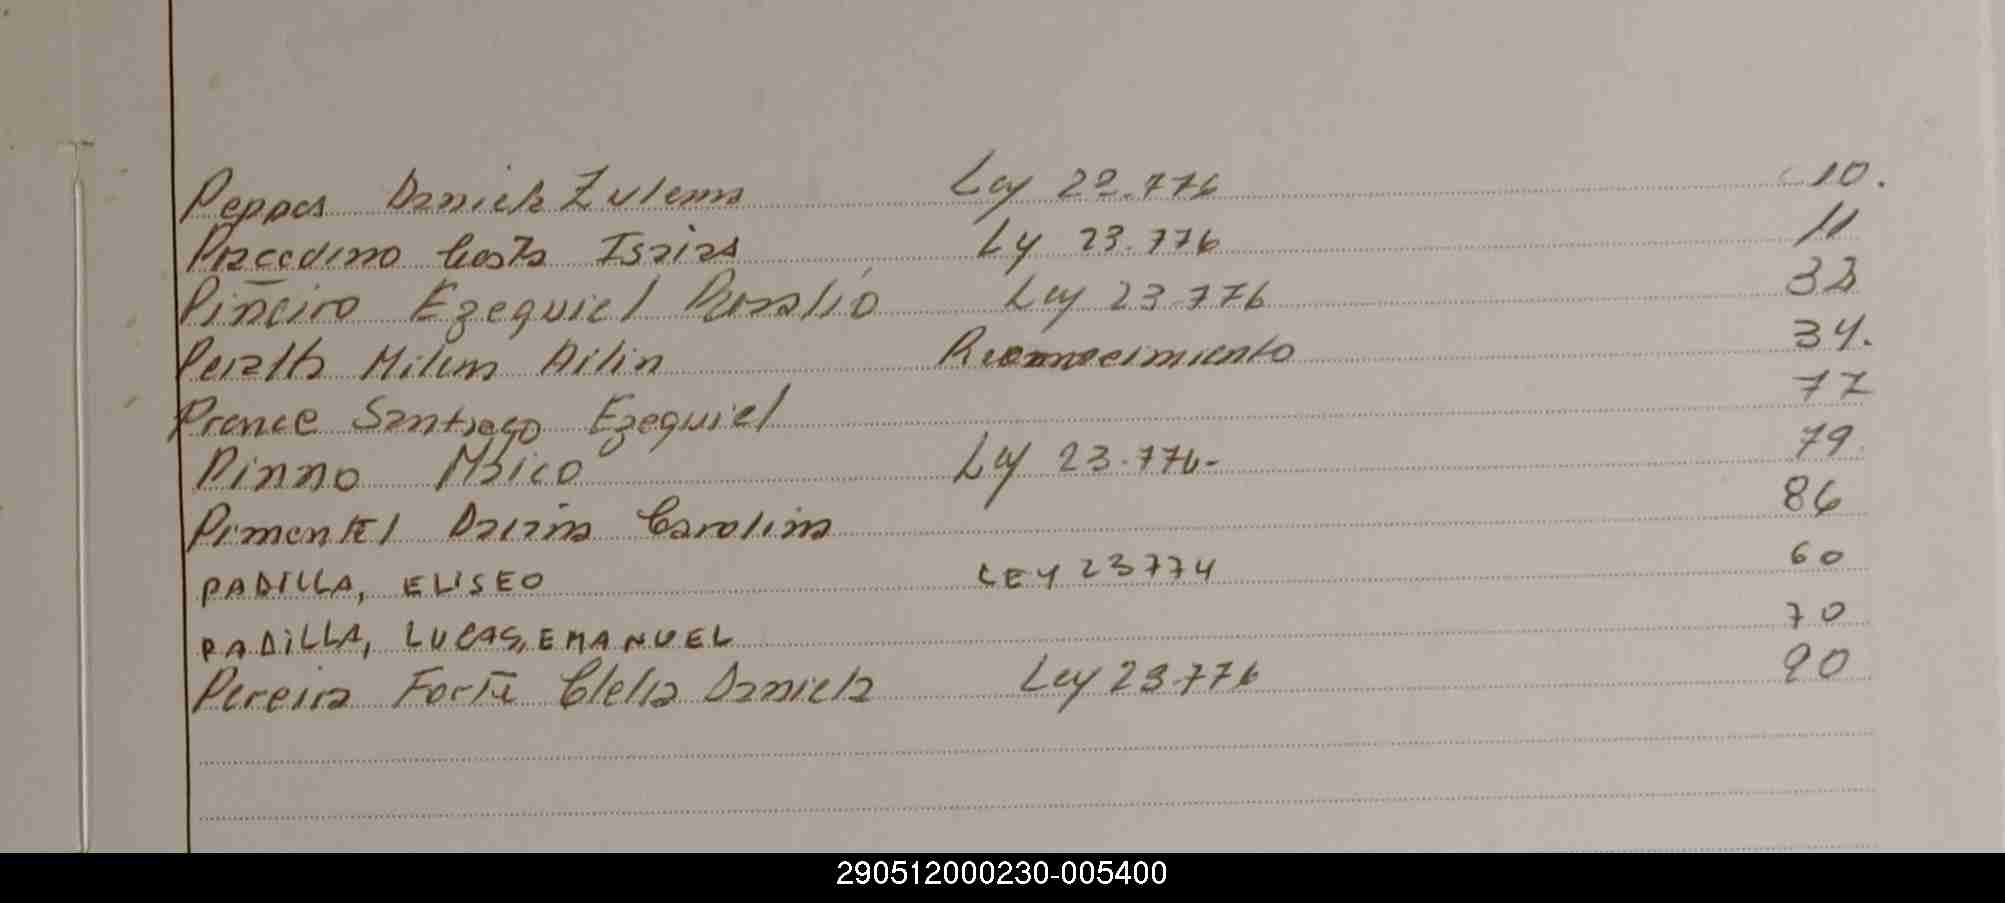 Peppas Daniela Zulema Ley 22.776 10.
Costa Isaias Ly 23.776 11
Piñeiro Ezequiel Ley 23.776 33
Peralta Milena Ailin Reconocimiento 34.
Prance Santiago Ezequiel 77
Pinno Maico Ley 23.776- 79
Pimentel Daiana Carolina 86
PADILLA, ELISEO LEY 23774 60
PADILLA, LUCAS, EMANUEL 70
Pereira Forte Clelia Daniela Ley 23.776 90
290512000230-005400